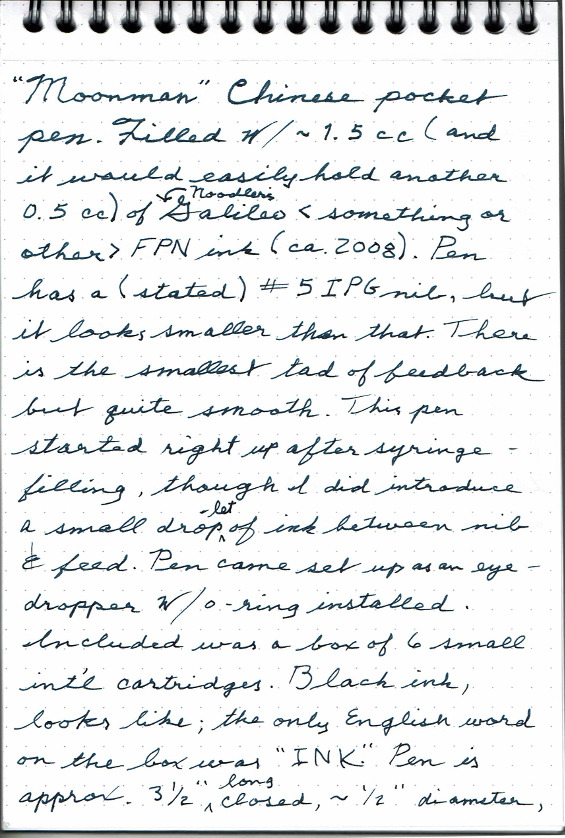 "Moonman" Chinese pocket
pen. Filled w/ ~ 1.5 cc (and
it would easily hold another
Noodler's
0.5 cc) of Galileo < something or
other> FPN ink (ca. 2008). Pen
has a (stated) # 5 IPG nib, but
it looks smaller than that. There
is the smallest tad of feedback
but quite smooth. This pen
started right up after syringe -
filling, though I did introduce
-let
a small drop of ink between nib
& feed. Pen came set up as an eye -
dropper w/ o-ring installed.
Included was a box of 6 small
int'l cartridges. Black ink,
looks like; the only English word
on the box was "INK." Pen is
long
approx. 3 1/2" closed, ~ 1/2" diameter,